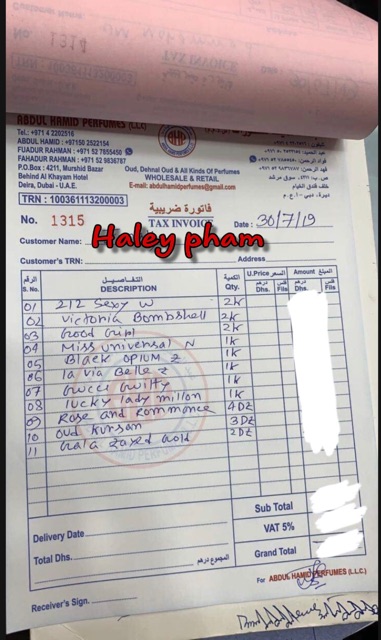 No. 1314
TAX INVOICE
TRN : 100361113200003
ABDUL HAMID PERFUMES (L.L.C)
Tel.: +971 4 2202516
ABDUL HAMID : +97150 2522154
FUADUR RAHMAN : +971 52 7855450
FAHADUR RAHMAN : +971 52 9836787
P.O.Box : 4211, Murshid Bazar
Behind Al Khayam Hotel
Deira, Dubai - U.A.E.
AHP
Oud, Dehnal Oud & All Kinds Of Perfumes
WHOLESALE & RETAIL
E-mail: abdulhamidperfumes@gmail.com
خلف فندق الخيام
TRN : 100361113200003
فاتورة ضريبية
No. 1315 TAX INVOICE Date : 30/7/19
Haley pham
Customer Name:
Customer's TRN: Address
الرقم التفاصيل الكمية U.Price السعر Amount المبلغ
S. No. DESCRIPTION Qty. درهم Dhs. فلس Fils درهم Dhs. فلس Fils
01 212 Sexy W 2k
02 Victoria Bombshell 2k
03 Good Girl 2k
04 Miss universal N 1k
05 Black opium 2 1k
06 la via Belle 2 1k
07 Gucci Guilty 1k
08 lucky lady millon 1k
09 Rose and Rommance 4 Dz
10 oud kursan 3 Dz
11 Gold 2 Dz
Sub Total
VAT 5%
Grand Total
Delivery Date
Total Dhs. المجموع درهم
For ABDUL HAMID PERFUMES (L.L.C.)
Receiver's Sign.